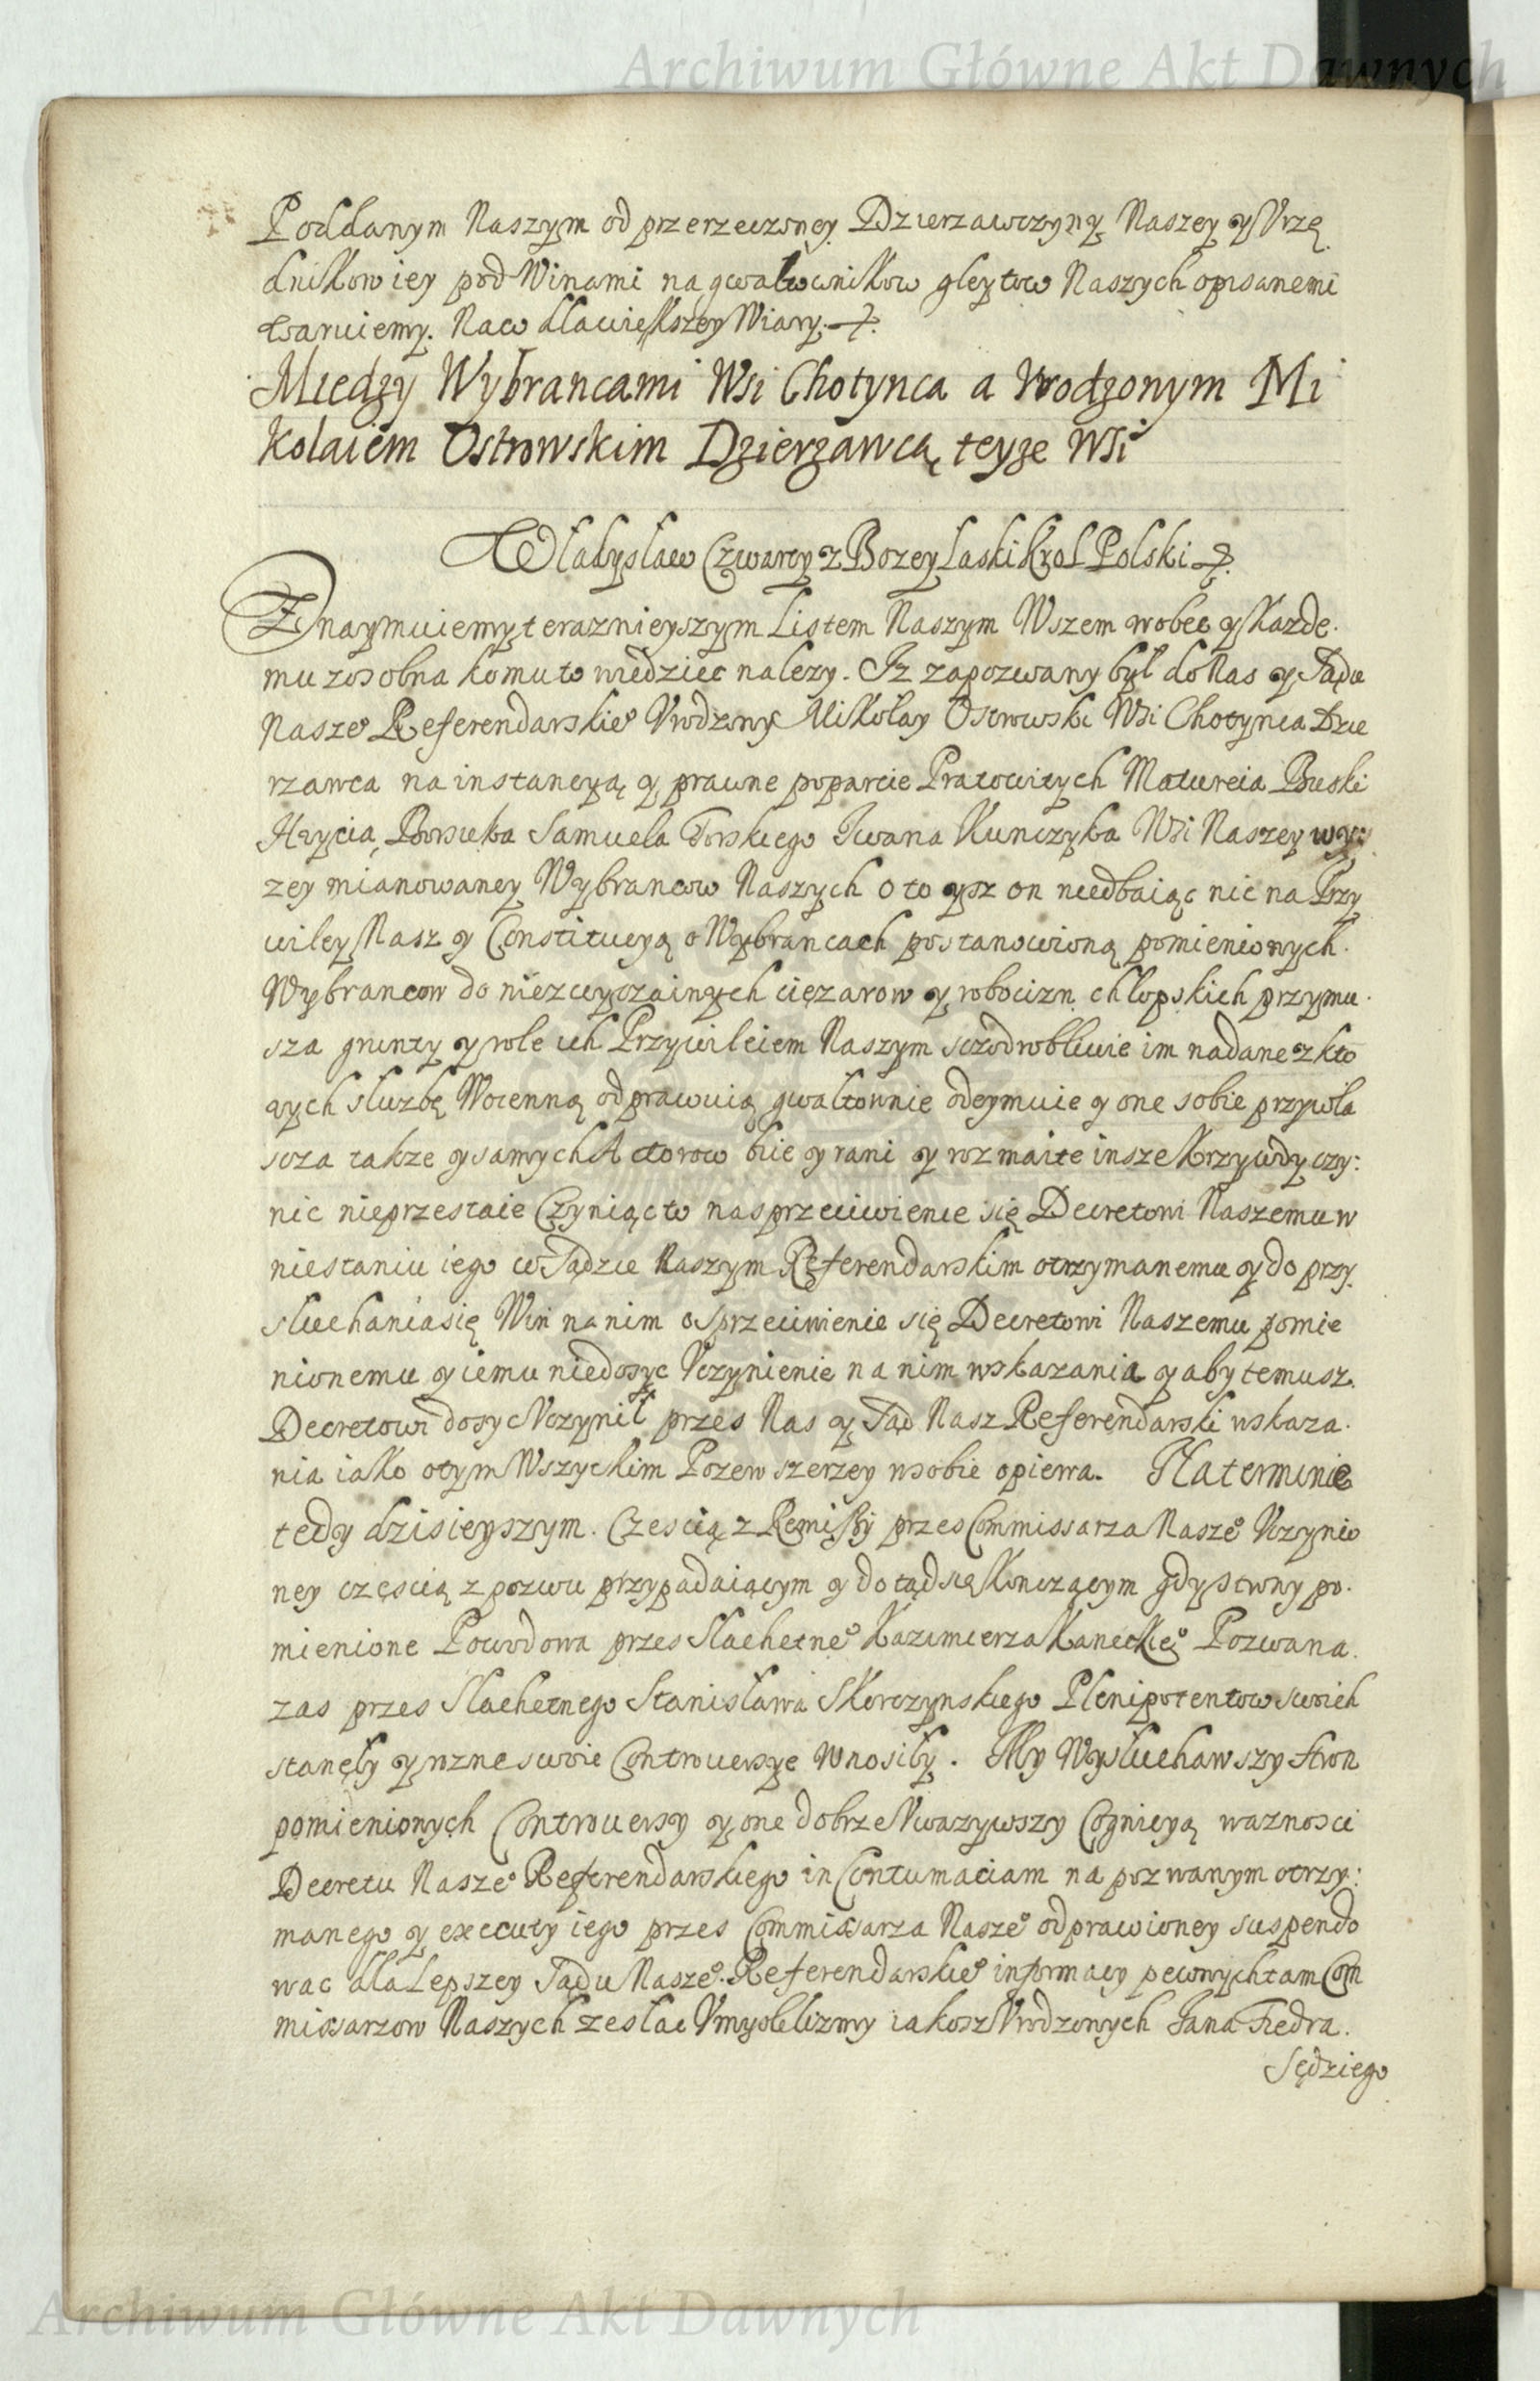 Archiwum Główne Akt Dawnych
Poddanym Naszym od przerzeczoney Dzierzawczyny Naszey y Vrzę
dnikow iey pod Winami na gwałtownikow gleytow Naszych opisanemi
waruiemy. Na co dla większey Wiary.
Między Wybrancami Wsi Chotynca a Vrodzonym Mi
kolaiem Ostrowskim Dzierzawcą teyze Wsi
Władysław Czwarty z Bozey Łaski Krol Polski
Znaymuiemy terazniejszym Listem Naszym Wszem wobec y Kazde.
mu zosobna komu to wiedziec nalezy. Iz zapozwany był do Nas y Sądu
Nasze° Referendarskie° Vrodzony Mikołay Ostrowski Wsi Chotynca Dzie
rzawca na instancyą y prawne poparcie Pracowitych Matweia Buski
Hrycia Borsuka Samuela Torskiego Iwana Kunczyka Wsi Naszey wy:
zey mianowaney Wybrancow Naszych o to ysz on niedbaiąc nic na Przy
wiley Nasz y Constitucyą o Wybrancach postanowioną pomienionych.
Wybrancow do niezwyczainych ciężarow y robocizn chłopskich przymu.
sza grunty y role ich Przywileiem Naszym szczodrobliwie im nadane z kto
rych służbę Woienną odprawuią gwałtownie odeymuie y one sobie przywła
scza takze y samych Actorow bie y rani y rozmaite insze Krzywdy czy:
nic nieprzestaie Czyniąc to na sprzeciwienie się Decretowi Naszemu w
niestaniu iego w Sądzie Naszym Referendarskim otrzymanemu y do przy.
słuchania się Win na nim o sprzeciwienie się Decretowi Naszemu pomie
nionemu y iemu niedosyc Vczynienie na nim wskazania y aby temusz.
Decretowi dosyc Vczynił przes Nas y Sąd Nasz Referendarski wskaza.
nia iako o tym Wszyckim Pozew szerzey w sobie opiewa. Na terminie
tedy dzisieyszym. Czescią z Remissy przes Commissarza Nasze° Vczynio
ney częscią z pozwu przypadaiącym y do tąd się Konczącym gdy strony po.
mienione Powodowa przes Slachetne° Kazimierza Kaneckie° Pozwana.
zas przes Slachetnego Stanisława Skorczynskiego Plenipotentow swoich
stanęły y rozne swoie Controversye wnosiły. My Wysłuchawszy stron
pomienionych Controversy y one dobrze Vwazywszy Cognicyą waznosci
Decretu Nasze° Referendarskiego in Contumaciam na pozwanym otrzy:
manego y execucy iego przes Commissarza Nasze° odprawioney suspendo
wac dla Lepszey Sądu Nasze° Referendarskie° informacy pewnych tam Com
missarzow Naszych zesłac Vmyslilizmy iakosz Vrodzonych Jana Fredra.
Sędziego
Archiwum Główne Akt Dawnych